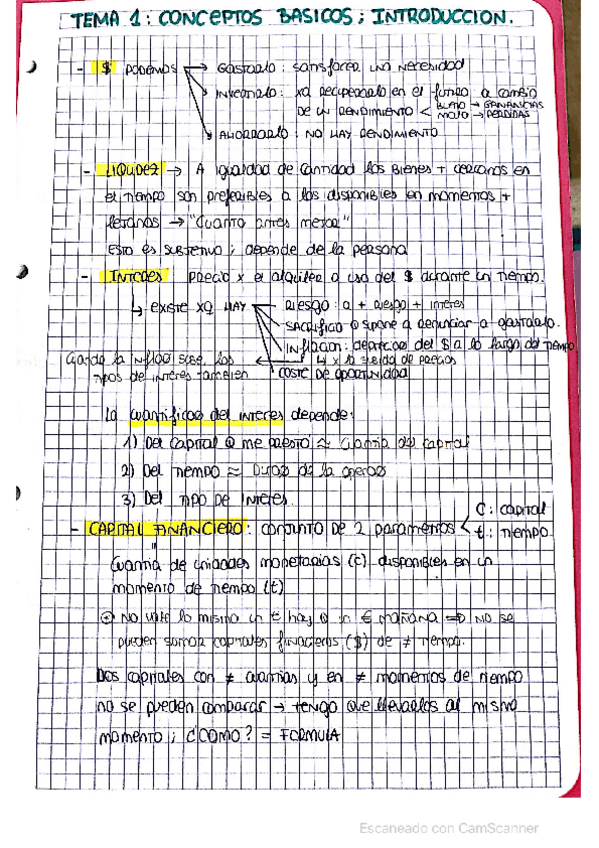 TEMA 1: CONCEPTOS BASICOS; INTRODUCCION.
- $ PODEMOS → GASTARLO: SATISFACER UNA NECESIDAD
INVERTIRLO: xa RECUPERARLO EN EL FUTURO A CAMBIO
DE UN RENDIMIENTO < BUENO → GANANCIAS
MALO → PERDIDAS
AHORRARLO: NO HAY RENDIMIENTO
- LIQUIDEZ → A igualdad de cantidad los BIENES + cercanos en
el tiempo son preferibles a los disponibles en momentos +
lejanos → "Cuanto antes mejor"
ESTO ES SUBJETIVO; depende de la persona
- INTERES PRECIO x el alquiler o uso del $ durante un tiempo.
↳ EXISTE XQ HAY RIESGO: a + RIESGO + INTERES
SACRIFICIO q supone a renunciar a gastarlo.
INFLACION: depreciac del $ a lo largo del tiempo
Cuando la inflac sube, los ← ↳ x la subida de precios
tipos de interes tambien COSTE DE OPORTUNIDAD
La cuantificac del INTERES depende:
1) Del Capital q me presto ≈ Cuantia del capital
2) Del TIEMPO ≈ Durac de la operac
3) Del TIPO DE INTERES.
- CAPITAL FINANCIERO: CONJUNTO DE 2 parametros < C: capital
t: TIEMPO
Cuantia de unidades monetarias (c) disponibles en un
momento de tiempo (t)
NO vale lo mismo un € hoy q un € mañana ⇒ NO se
pueden sumar capitales financieros ($) de ≠ tiempo.
Dos capitales con ≠ cuantias y en ≠ momentos de tiempo
no se pueden comparar → tengo que llevarlos al mismo
momento; ¿COMO? = FORMULA
Escaneado con CamScanner